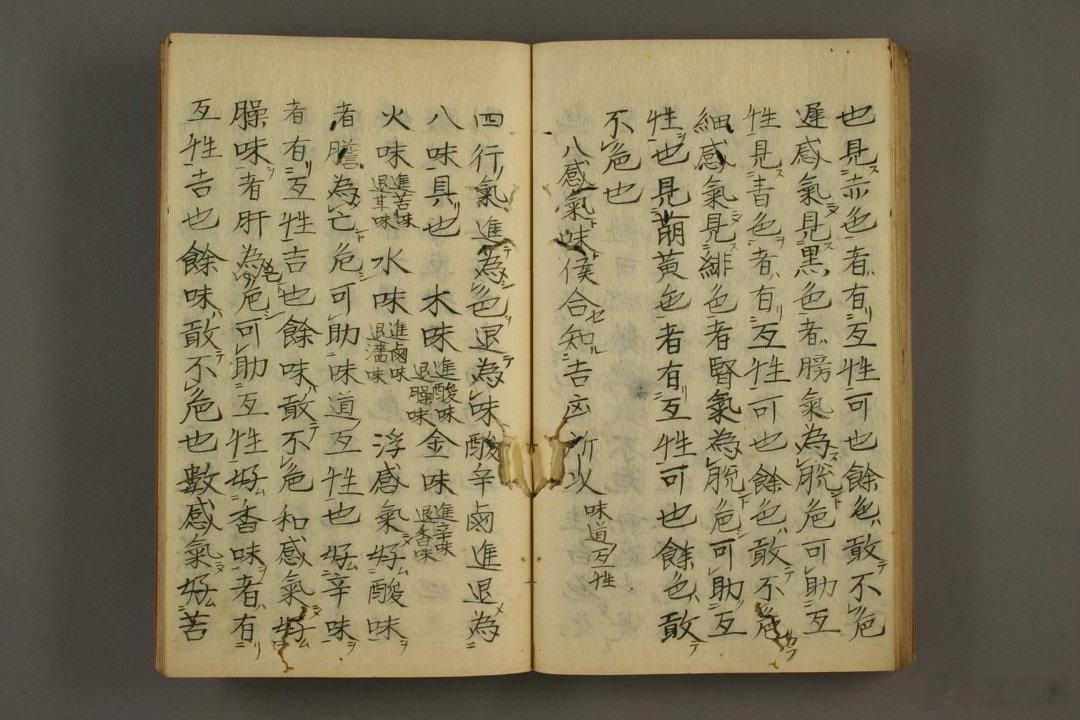 也見赤色者有互性可也餘色敢不危
遅感氣見黒色者膀氣為脱危可助互
性見青色者有互性可也餘色敢不危
細感氣見緋色者腎氣為脱危可助互
性也見萠黄色者有互性可也餘色敢
不危也
八感氣味候合知吉凶所以 味道互性
四行氣進為色退為味酸辛鹵進退為
八味具也 木味 進酸味 退臊味 金味 進辛味 退香味
火味 進苦味 退甘味 水味 進鹵味 退濇味 浮感氣好酸味
者膽為亡危可助味道互性也好辛味
者有互性吉也餘味敢不危和感氣好
臊味者肝為危可助互性好香味者有
互性吉也餘味敢不危也數感氣好苦